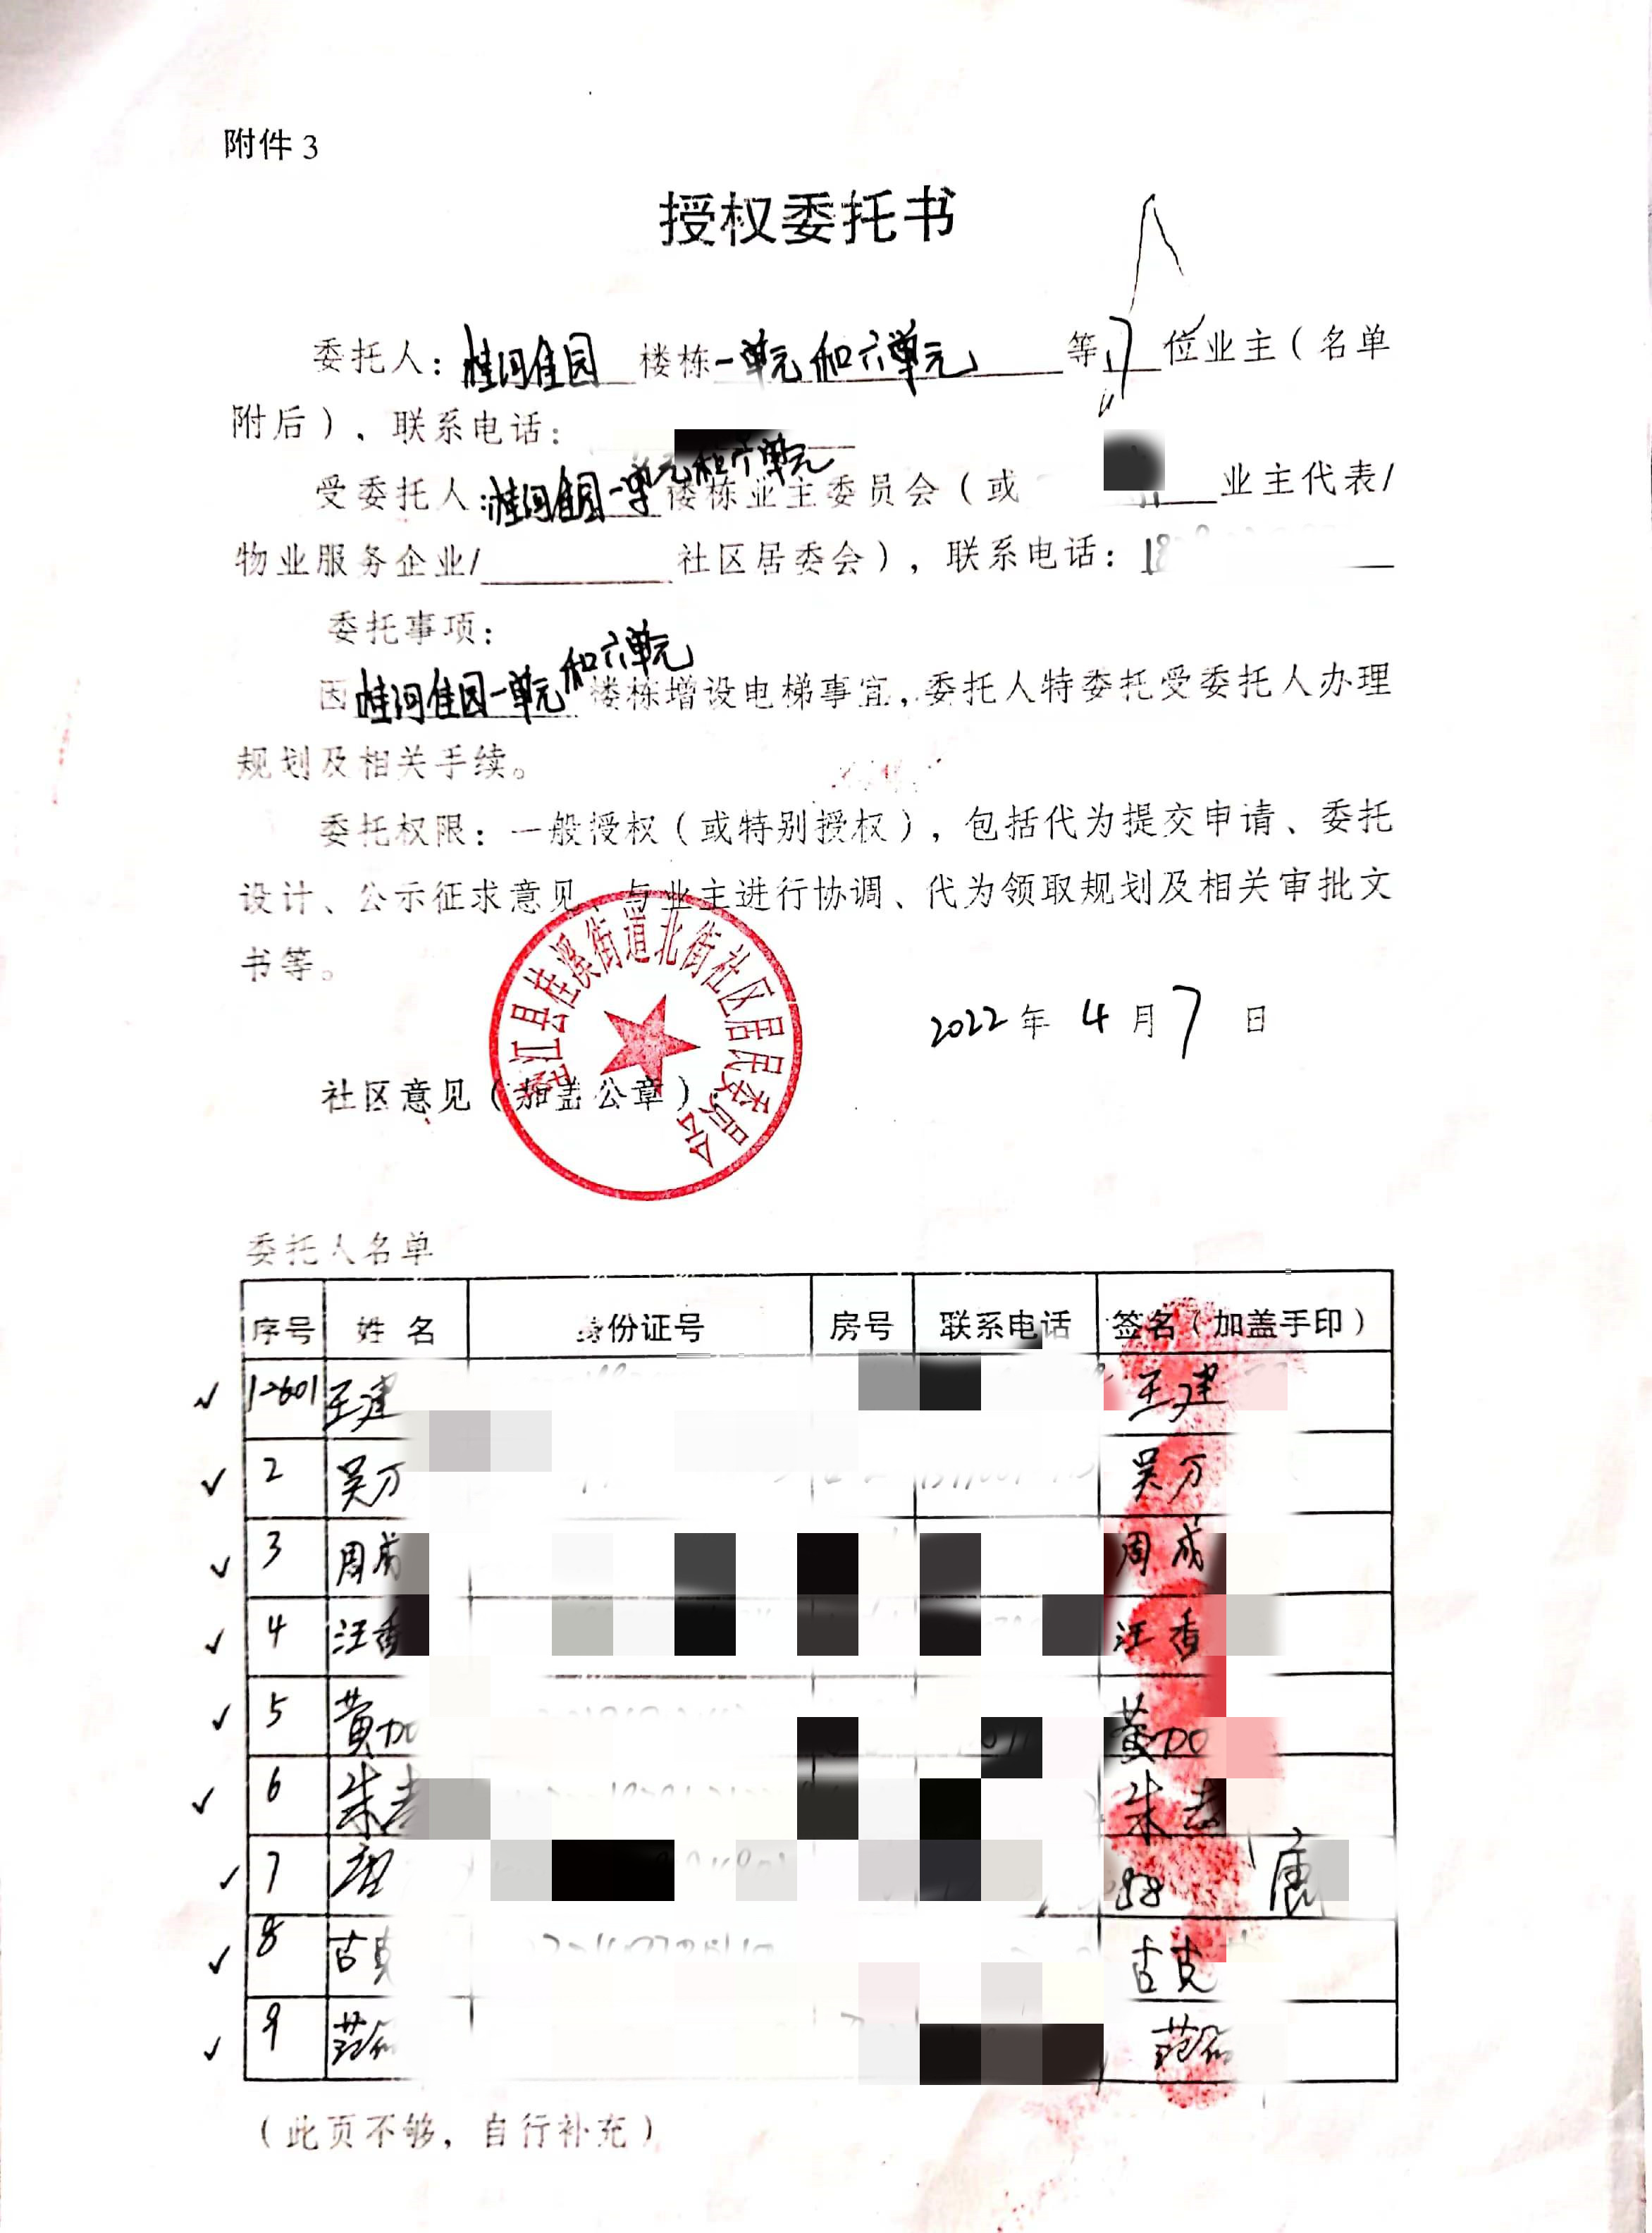 附件 3
授权委托书
委托人：桂河佳园 楼栋一单元和六单元 等17位业主（名单
附后）、联系电话：
受委托人：桂河佳园一单元和六单元 楼栋业主委员会（或 业主代表/
物业服务企业/ 社区居委会），联系电话：18
委托事项：
因桂河佳园一单元和六单元 楼栋增设电梯事宜，委托人特委托受委托人办理
规划及相关手续。
委托权限：一般授权（或特别授权），包括代为提交申请、委托
设计、公示征求意见、与业主进行协调、代为领取规划及相关审批文
书等。
垫江县桂溪街道北街社区居民委员会
2022年 4月7日
社区意见（加盖公章）：
委托人名单
序号 姓名 身份证号 房号 联系电话 签名（加盖手印）
1-2601 王建 王建
2 吴万 吴万
3 周成 周成
4 汪香 汪香
5 黄加 黄加
6 朱 朱
7 唐 唐
8 古克 古克
9 范 范
（此页不够，自行补充）